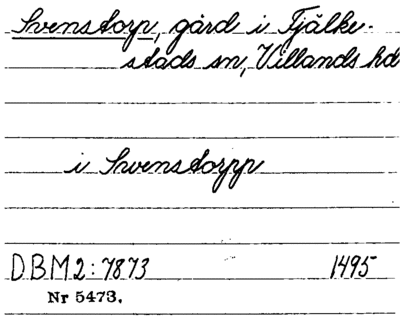 Svenstorp, gård i Fjälke-
stads sn, Villands hd
i Swenstorpp
DBM2:7873 1495
Nr 5473.